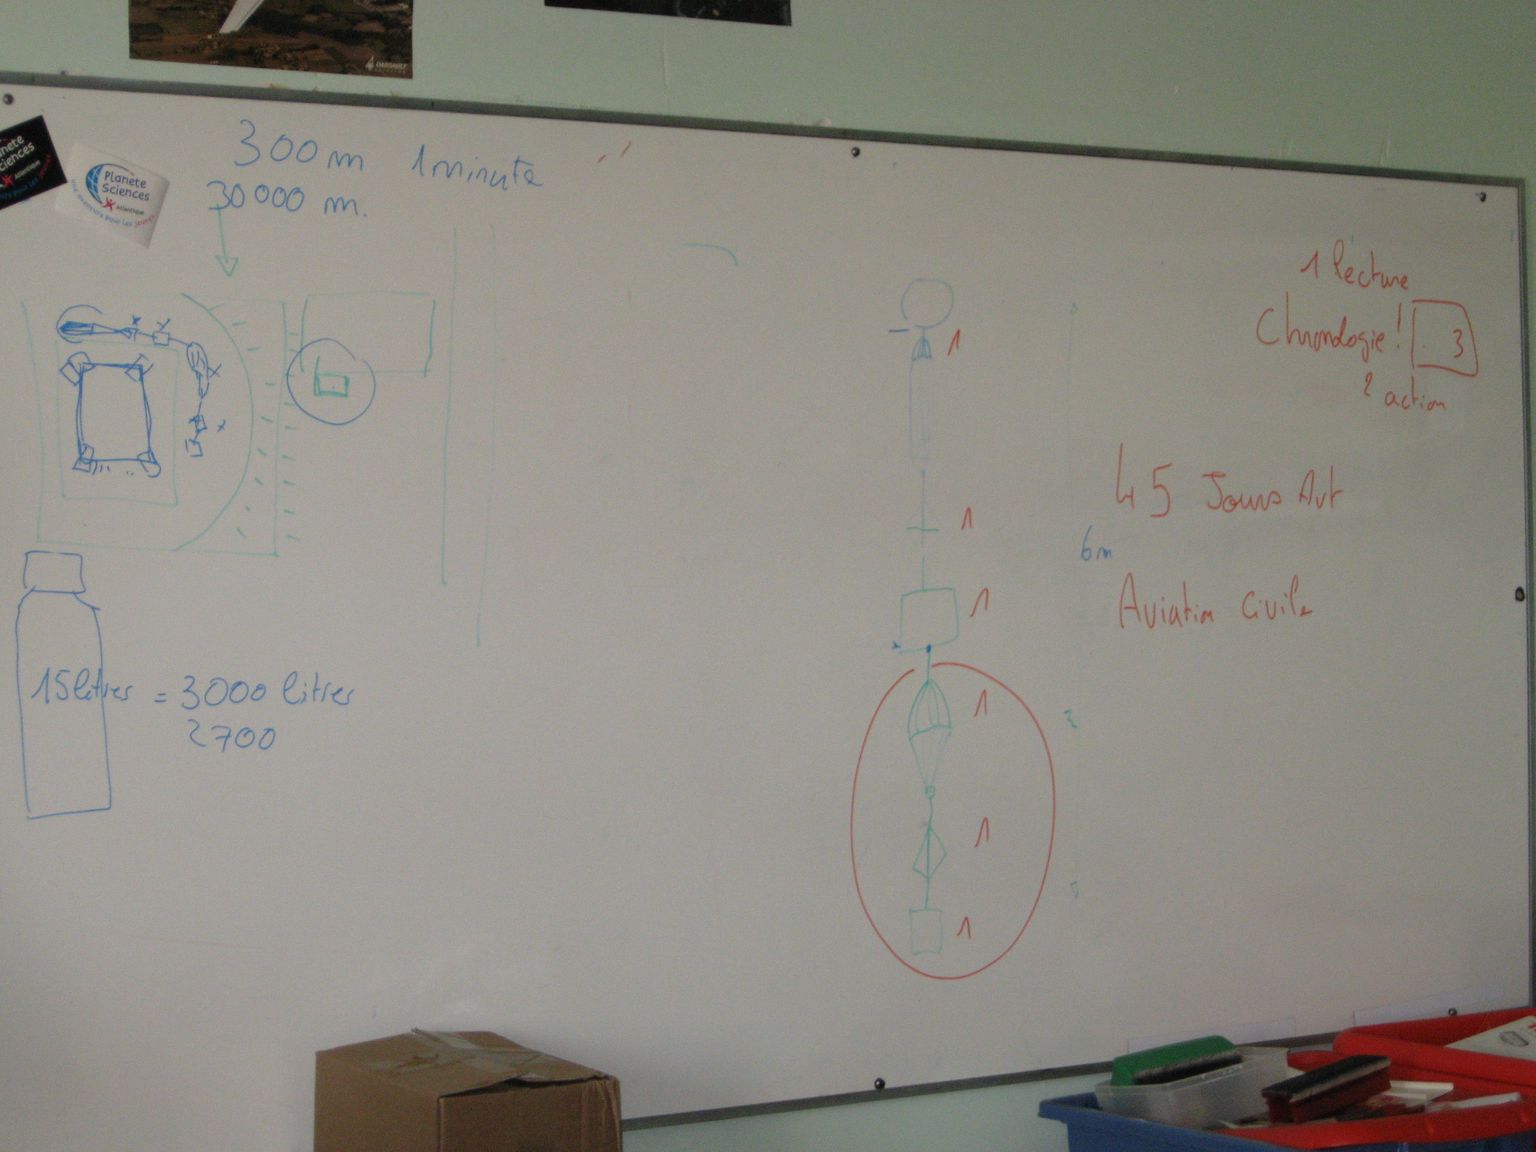 DASSAULT
Planete
Sciences
Atlantique
300m 1 minute
30 000 m.
1 lécture
Chronologie! 3
2 action
1
1
45 Jours Avt
6m
1
Aviation Civile
15 litres = 3000 litres
2700
1
1
1